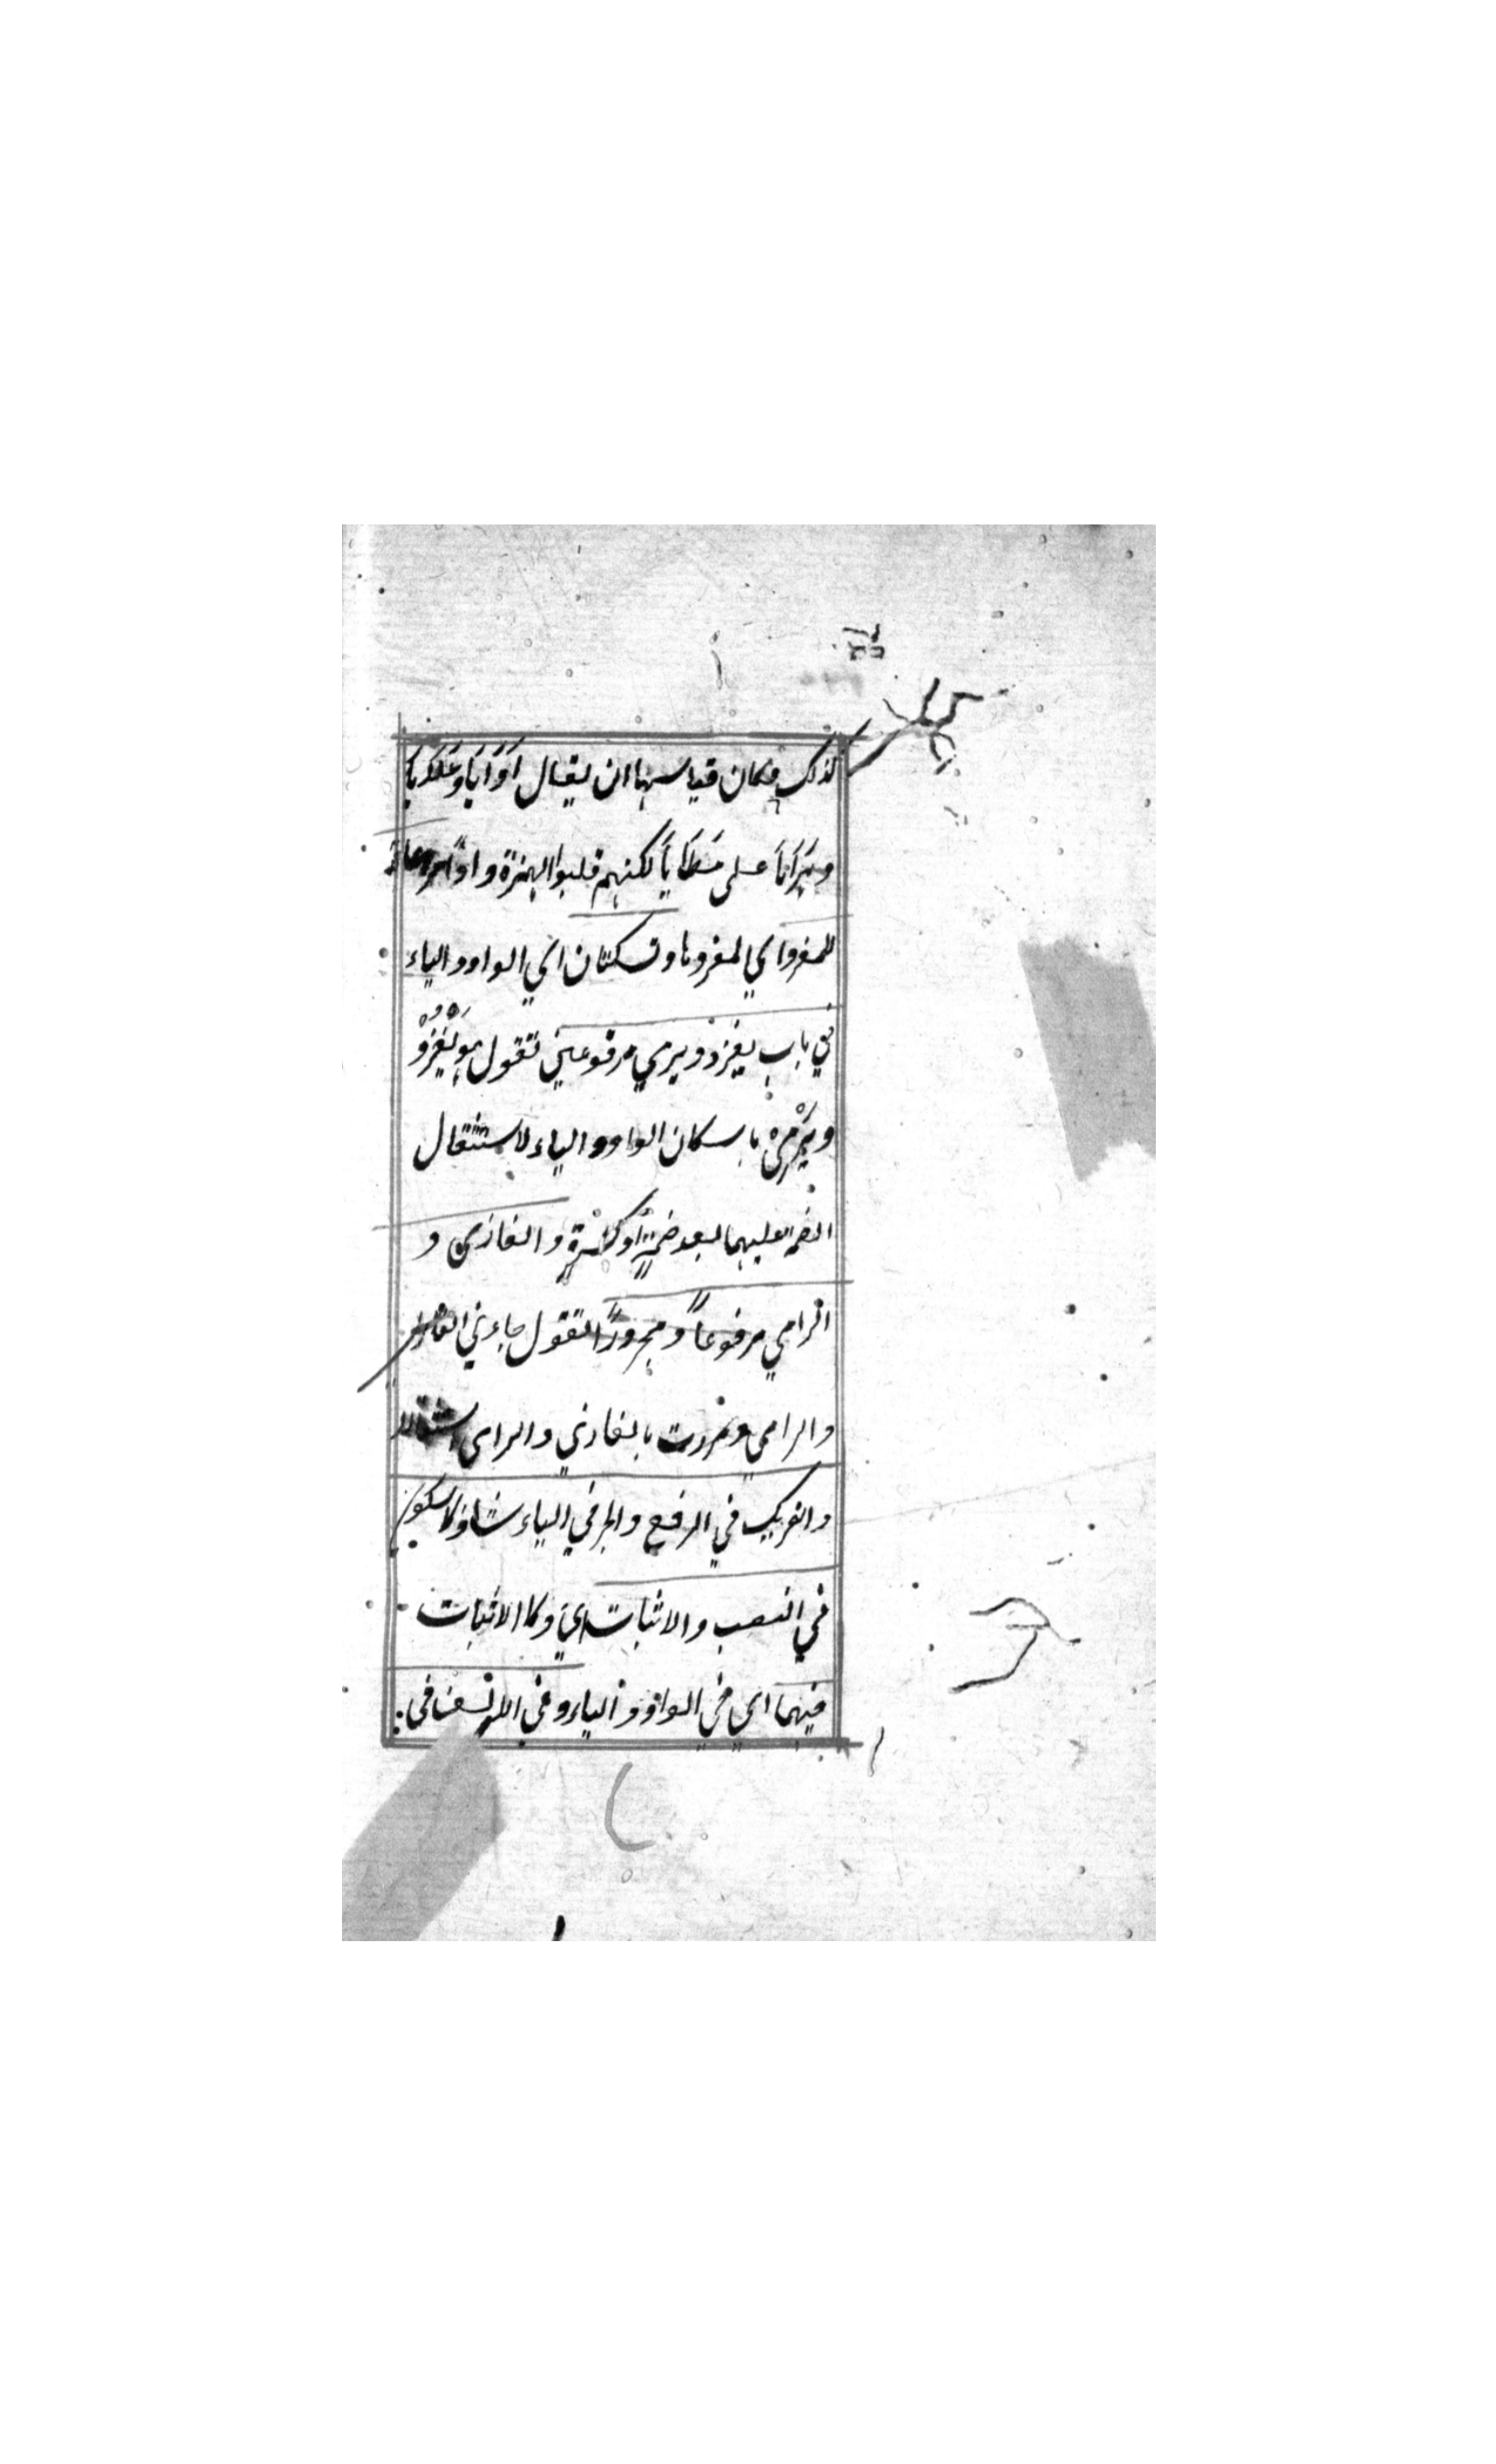 كذلك فكان قياسها ان يقال اَوَايَا وَعَلَايَا
وهَرَايَا على مَطَايَا لكنهم قلبوا الهمزة واوًا مراعاة
للمفرد اي لمفردها وتسكنان اي الواو والياء
في باب يغزو ويرمي مرفوعين تقول هو يَغْزُوْ
ويَرْمِيْ باسكان الواو والياء لاستثقال
الضمة عليهما بعد ضمةٍ او كسرةٍ والغازي و
الرامي مرفوعاً ومجروراً تقول جاءني الغازي
والرامي ومررت بالغازي والرامي
والتحريك في الرفع والجر في الياء شاذ كالسكون
في النصب والاثبات اي وكالاثبات
فيهما اي في الواو والياء وفي الالف في